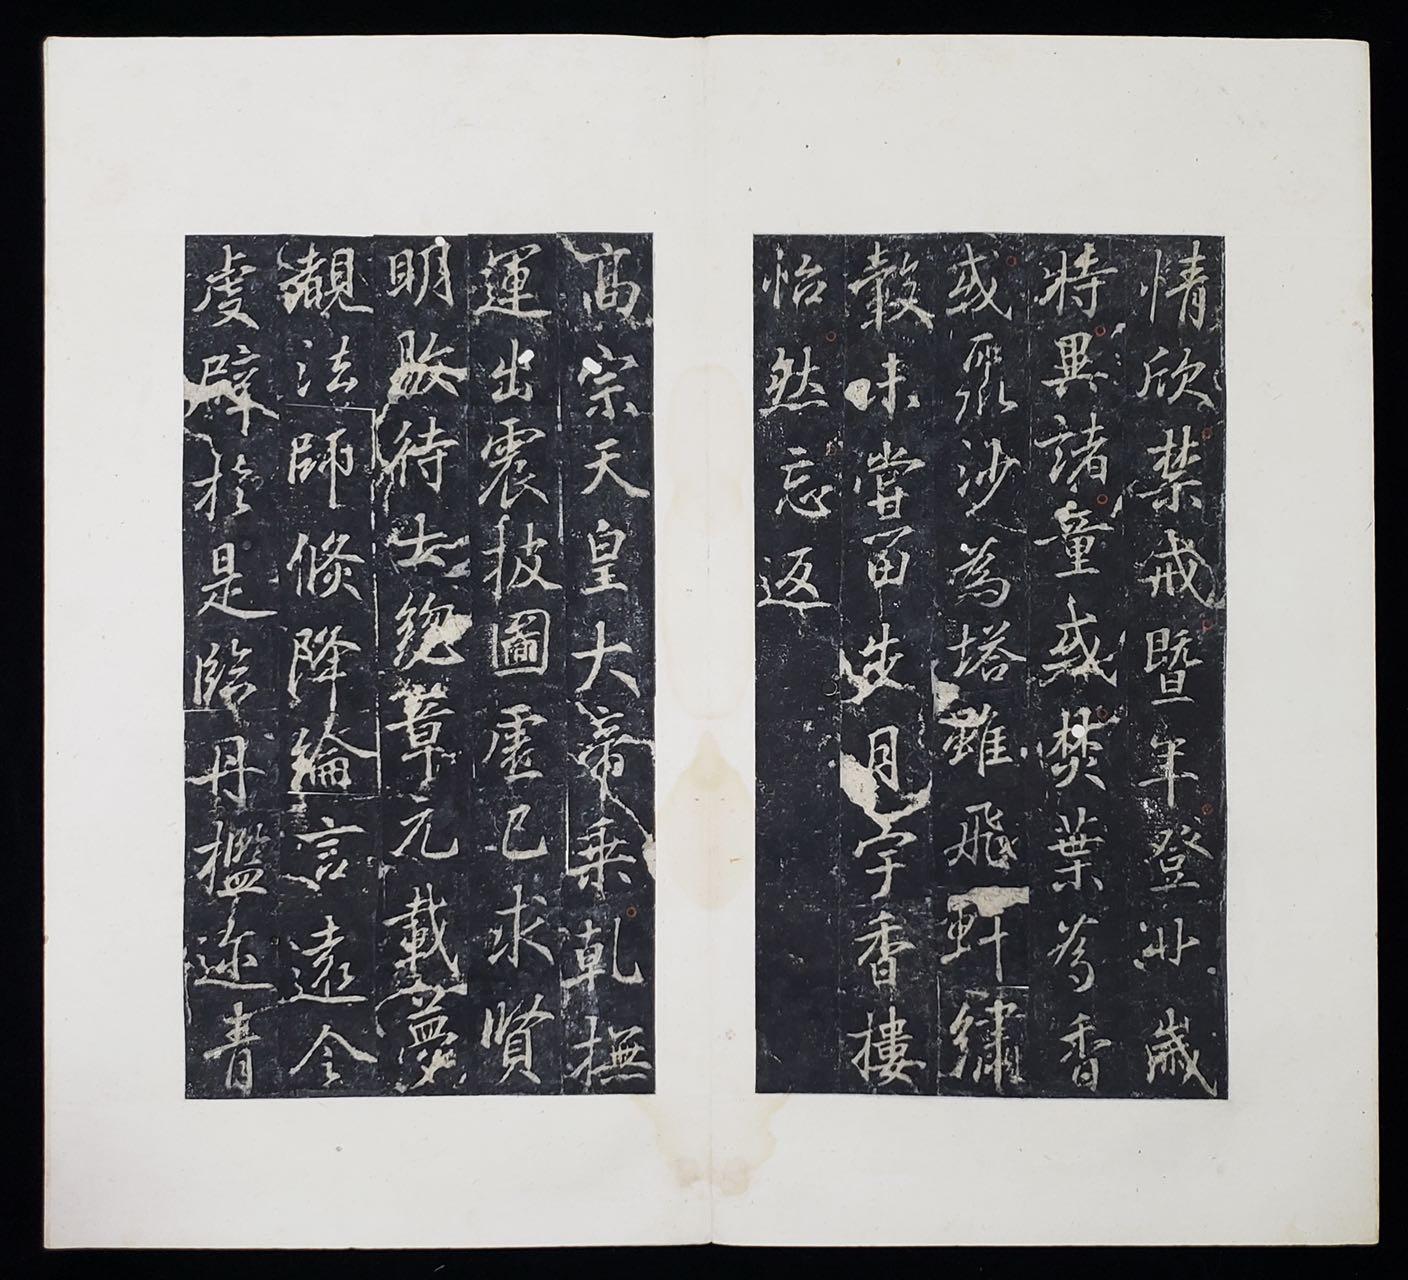 情欣禁戒暨年登丱歲
特異諸童或焚葉為香
或聚沙為塔雖飛軒繡
轂味嘗留步月宇香樓
怡然忘返
高宗天皇大帝乘乾撫
運出震披圖虛己求賢
明敭待士總章元載夢
覩法師倏降綸言遠令
虔辟於是臨丹檻邇青